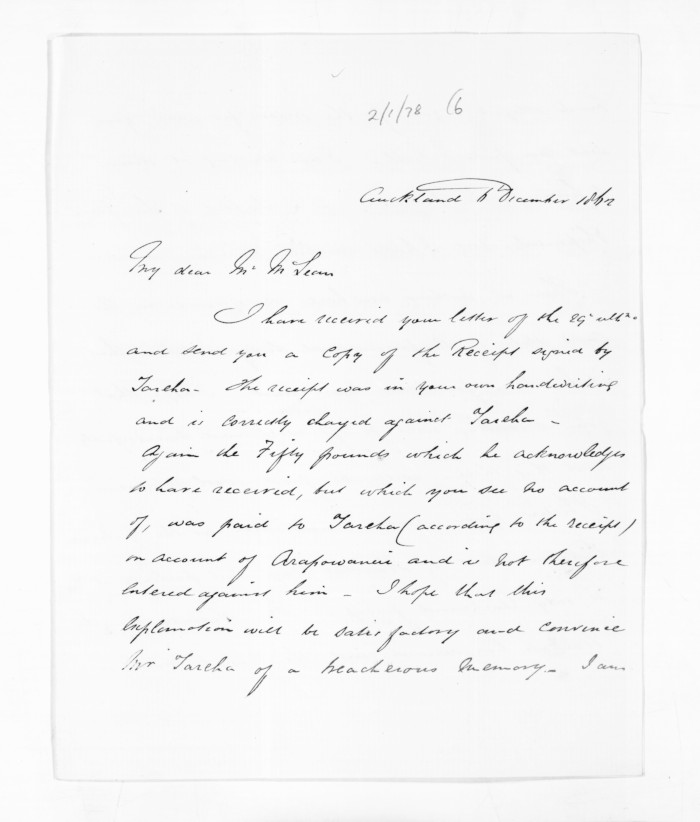 2/1/78 (6
Auckland 6 December 1862
My dear Mr McLean
I have received your letter of the 29 ulto.
and send you a copy of the Receipt signed by
Tareha - the receipt was in your own handwriting
and is correctly charged against Tareha -
Again the Fifty pounds which he acknowledges
to have received, but which you see no account
of, was paid to Tareha (according to the receipt)
on account of Arapowanui and is not therefore
entered against him - I hope that this
explanation will be satisfactory and convince
Mr Tareha of a treacherous memory - I am